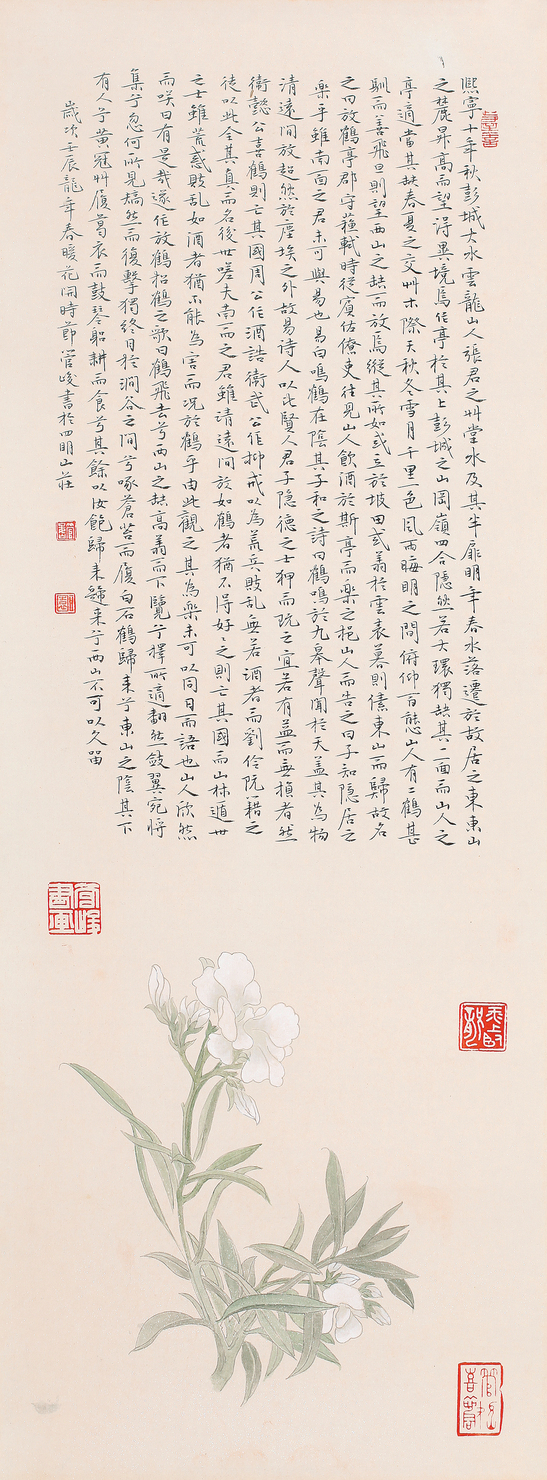 熙寧十年秋彭城大水雲龍山人張君之艸堂水及其半扉明年春水落遷於故居之東東山
之麓昇高而望得異境焉作亭於其上彭城之山岡嶺四合隱然若大環獨缺其一面而山人之
亭適當其缺春夏之交艸木際天秋冬雪月千里一色風雨晦明之間俯仰百態山人有二鶴甚
馴而善飛旦則望西山之缺而放焉縱其所如或立於坡田或翥於雲表暮則傃東山而歸故名
之曰放鶴亭郡守蘇軾時從賓佐僚吏往見山人飲酒於斯亭而樂之挹山人而告之曰子知隱居之
樂乎雖南面之君未可與易也易曰鳴鶴在陰其子和之詩曰鶴鳴於九皋聲聞於天蓋其為物
清遠閒放超然於塵埃之外故易詩人以比賢人君子隱德之士狎而玩之宜若有益而無損者然
衛懿公喜鶴則亡其國周公作酒誥衛武公作抑戒以為荒惑敗亂無若酒者而劉伶阮籍之
徒以此全其真而名後世嗟夫南面之君雖清遠閒放如鶴者猶不得好好之則亡其國而山林遁世
之士雖荒惑敗亂如酒者猶不能為害而況於鶴乎由此觀之其為樂未可以同日而語也山人欣然
而笑曰有是哉遂作放鶴招鶴之歌曰鶴飛去兮西山之缺高翥而下覽兮擇所適翻然斂翼宛將
集兮忽何所見矯然而復擊獨終日於澗谷之間兮啄蒼苔而履白石鶴歸來兮東山之陰其下
有人兮黃冠艸履葛衣而鼓琴躬耕而食兮其餘以汝飽歸來歸來兮西山不可以久留
歲次壬辰龍年春暖花開時節管峻書於四明山莊